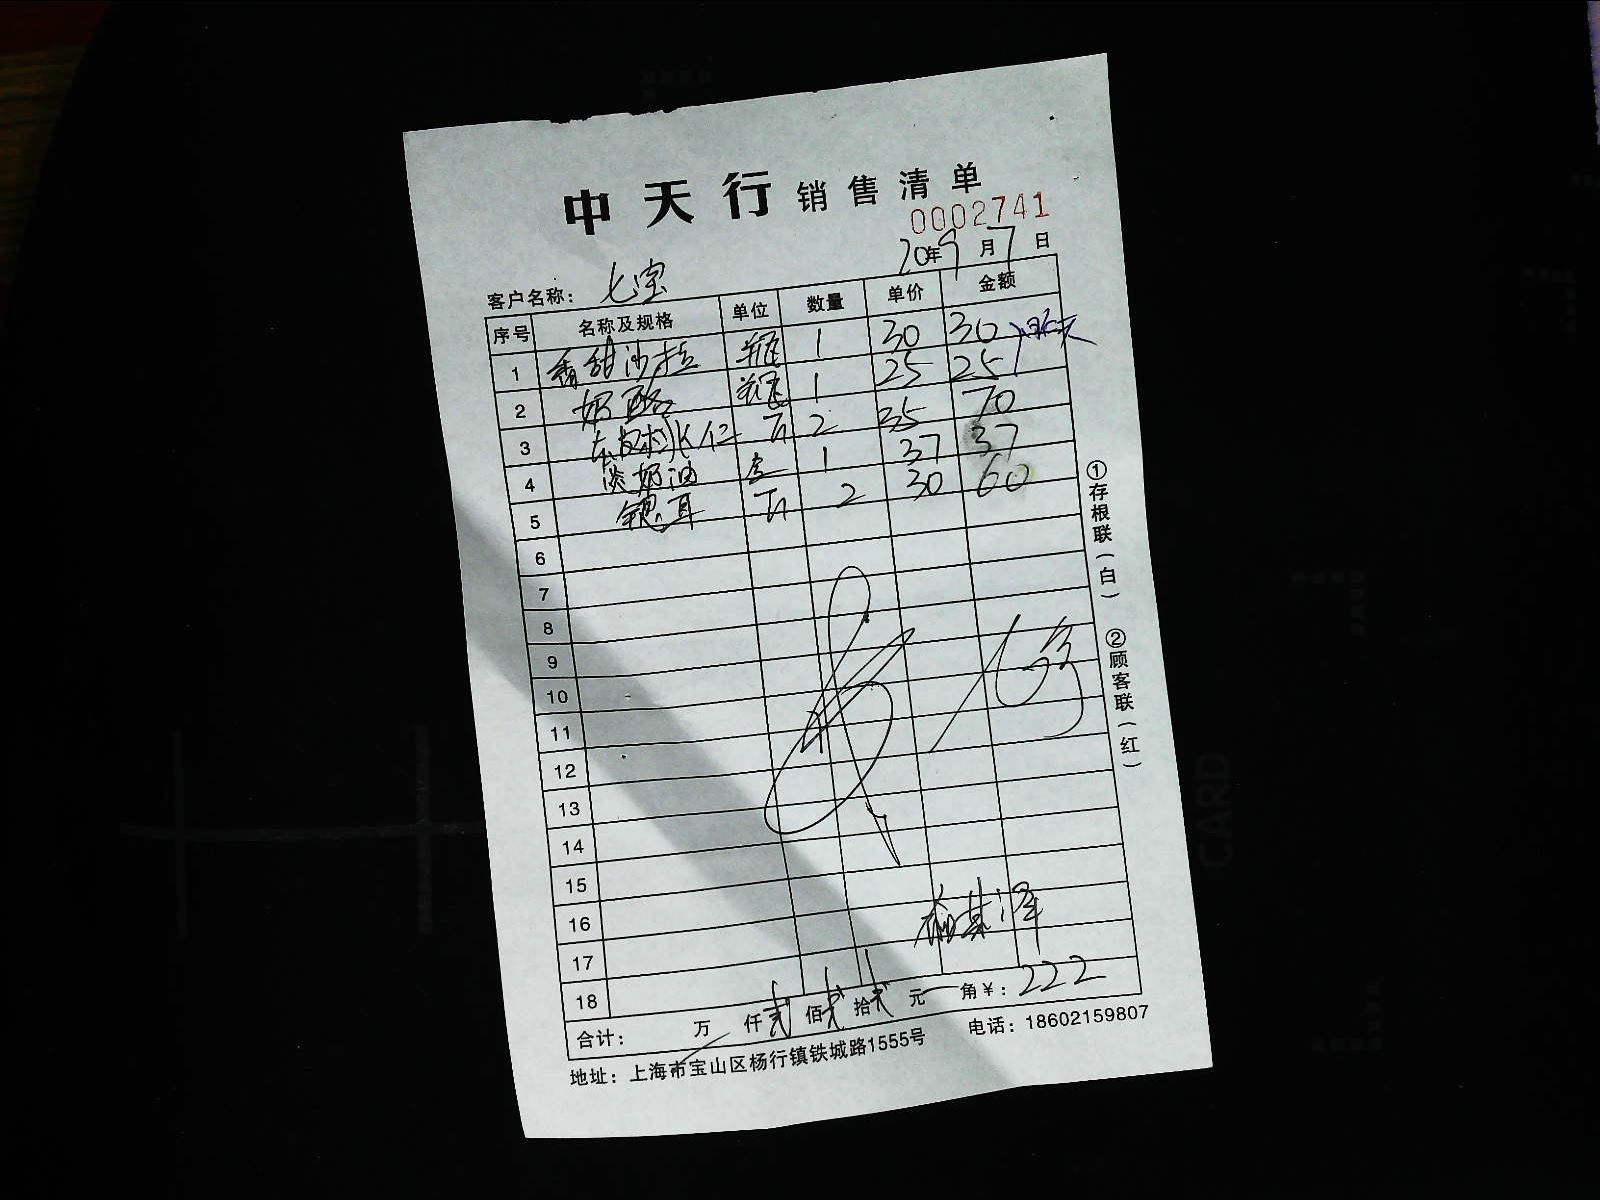 中天行销售清单
0002741
20年9月7日
客户名称： 七宝
序号 名称及规格 单位 数量 单价 金额
1 香甜沙拉 瓶 1 30 30 昨天
2 奶酪 瓶 1 25 25
3 2 35 70
4 淡奶油 盒 1 37 37
5 银耳 2 30 60
6
7
8
9
10
11
12
13
14
15
16
17
18
合计： 万 仟 贰 佰 贰 拾 贰 元 角 ￥：222
地址：上海市宝山区杨行镇铁城路1555号 电话：18602159807
①存根联（白） ②顾客联（红）